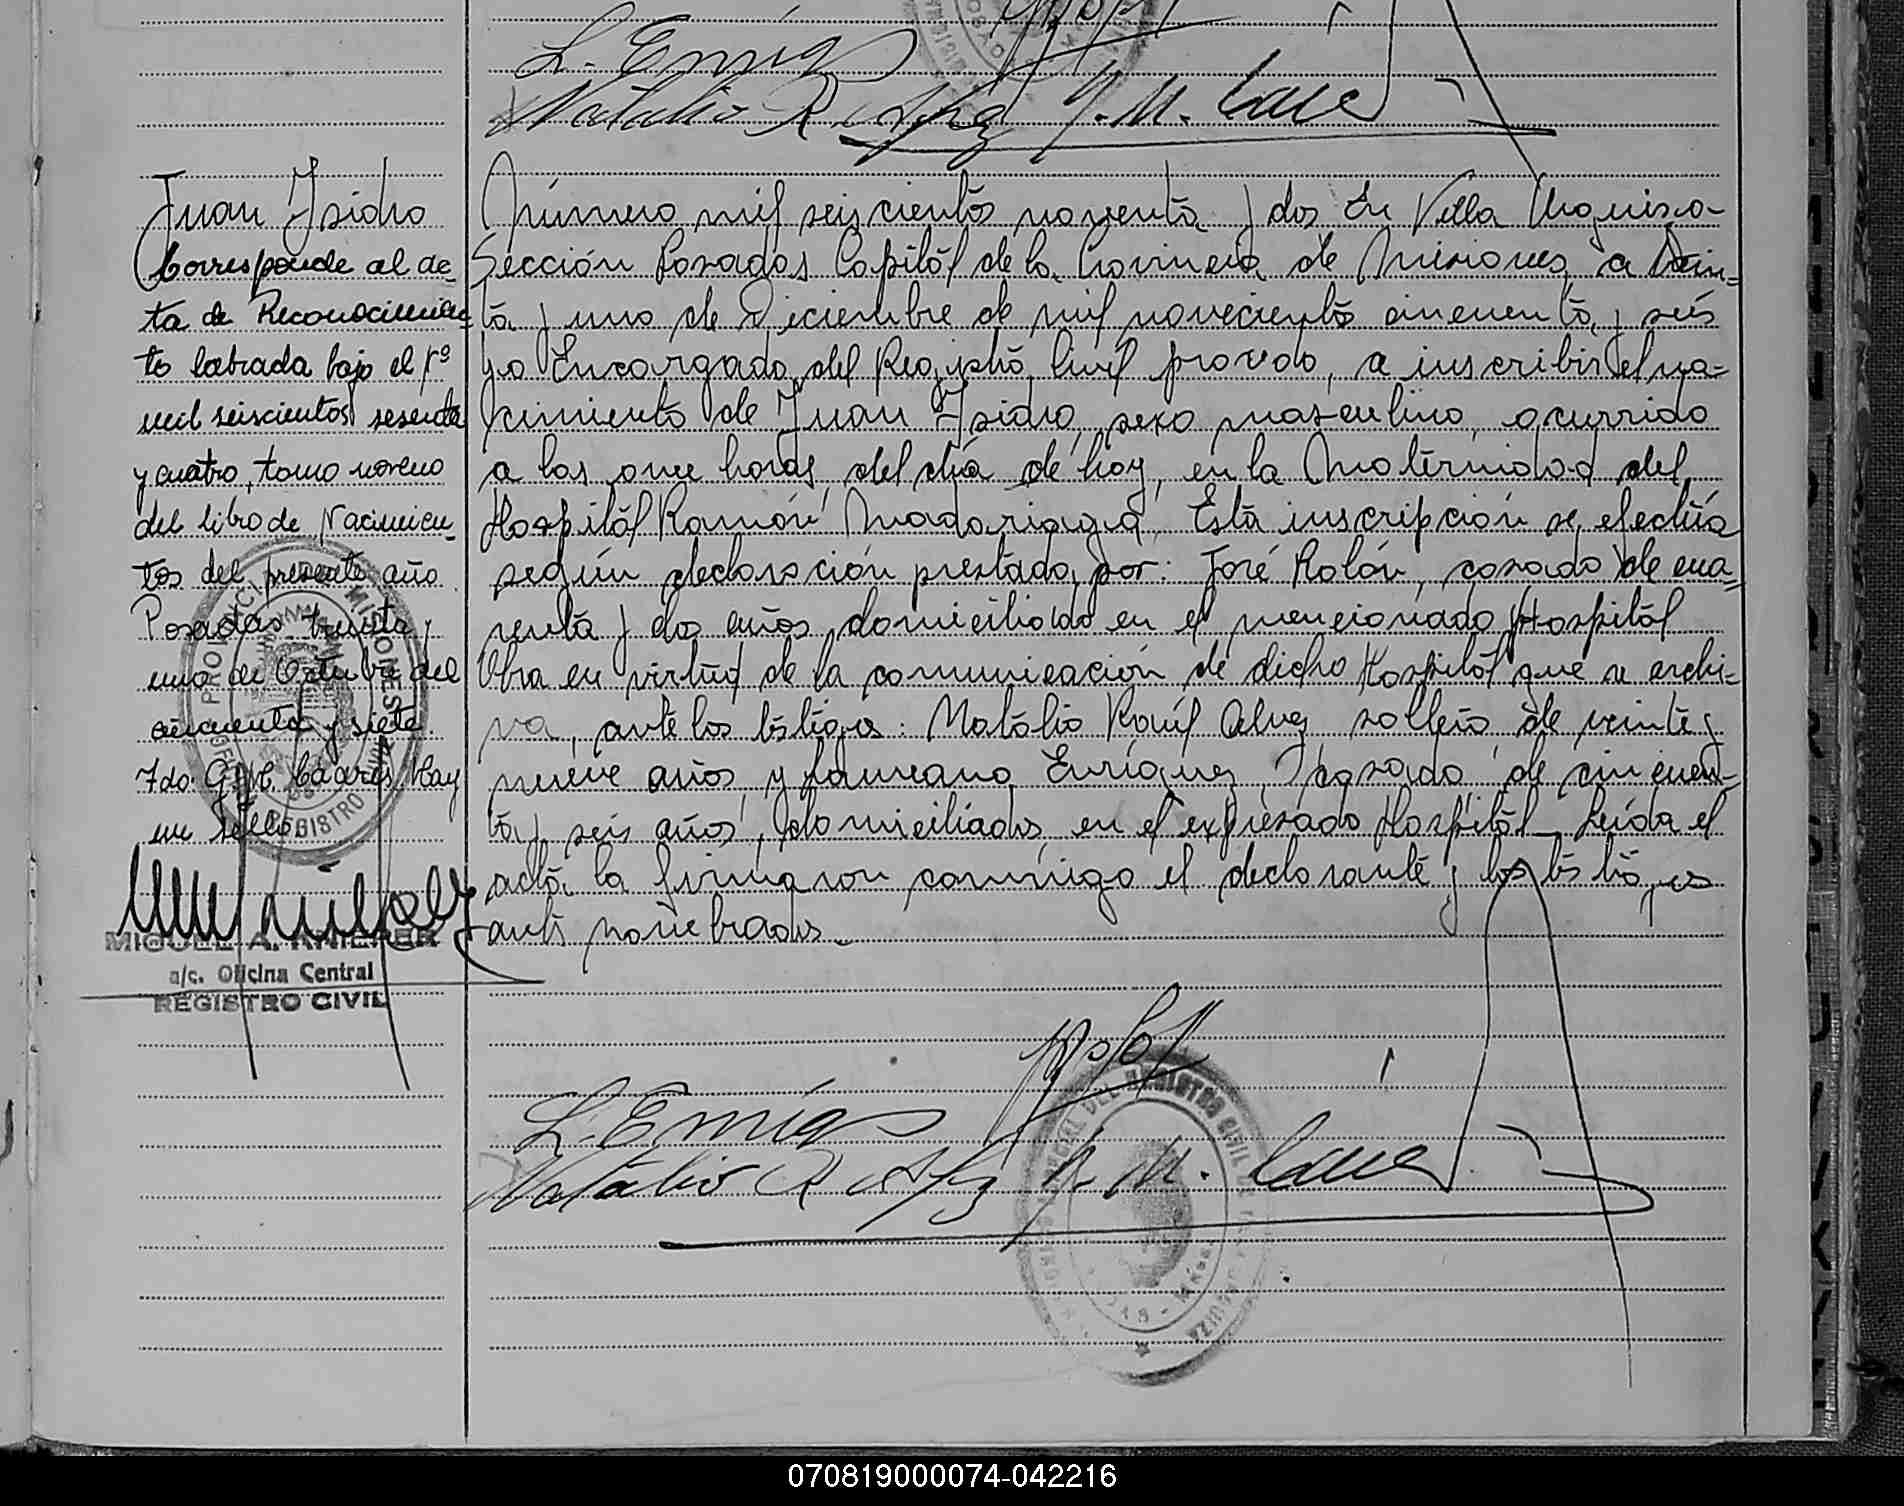 L. Enríqz
Natalio R. Alvez J. M. Cace
Juan Isidro
Corresponde al ac-
ta de Reconocimien-
to labrada bajo el Nº
mil seiscientos sesenta
y cuatro, tomo noveno
del libro de Nacimien-
tos del presente año
Posadas treinta y
uno de Octubre del
cincuenta y siete
Fdo: G. N. Cáceres. Hay
un Sello.
MIGUEL A. KNIEPER
a/c. Oficina Central
REGISTRO CIVIL
Número mil seiscientos noventa y dos En Villa Urquiza-
Sección Posadas Capitál de la Provincia de Misiones, a trein-
ta y uno de Diciembre de mil novecientos cincuenta y seis
yo Encargado del Registro Civil procedo, a inscribir el na-
cimiento de Juan Isidro, sexo masculino, ocurrido
a las once horas, del día de hoy, en la Maternidad del
Hospitál Ramón Madariaga. Esta inscripción se efectúa
según declaración prestada por: José Rolón, casado de cua-
renta y dos años domiciliado en el mencionado Hospitál
Obra en virtud de la comunicación de dicho Hospitál que se archi-
va, ante los testigos: Natálio Raúl Alvez soltero, de veinte y
nueve años, y Laureano Enríquez, casado, de cincuen-
ta y seis años, domiciliados en el expresado Hospitál. Leída el
acta, la firmaron conmigo el declarante y los testigos
antes nombrados.
L. Enríqz
Natálio R. Alvez J. M. Cace
PROVINCIA DE MISIONES
REGISTRO
DEL REGISTRO CIVIL DE
070819000074-042216